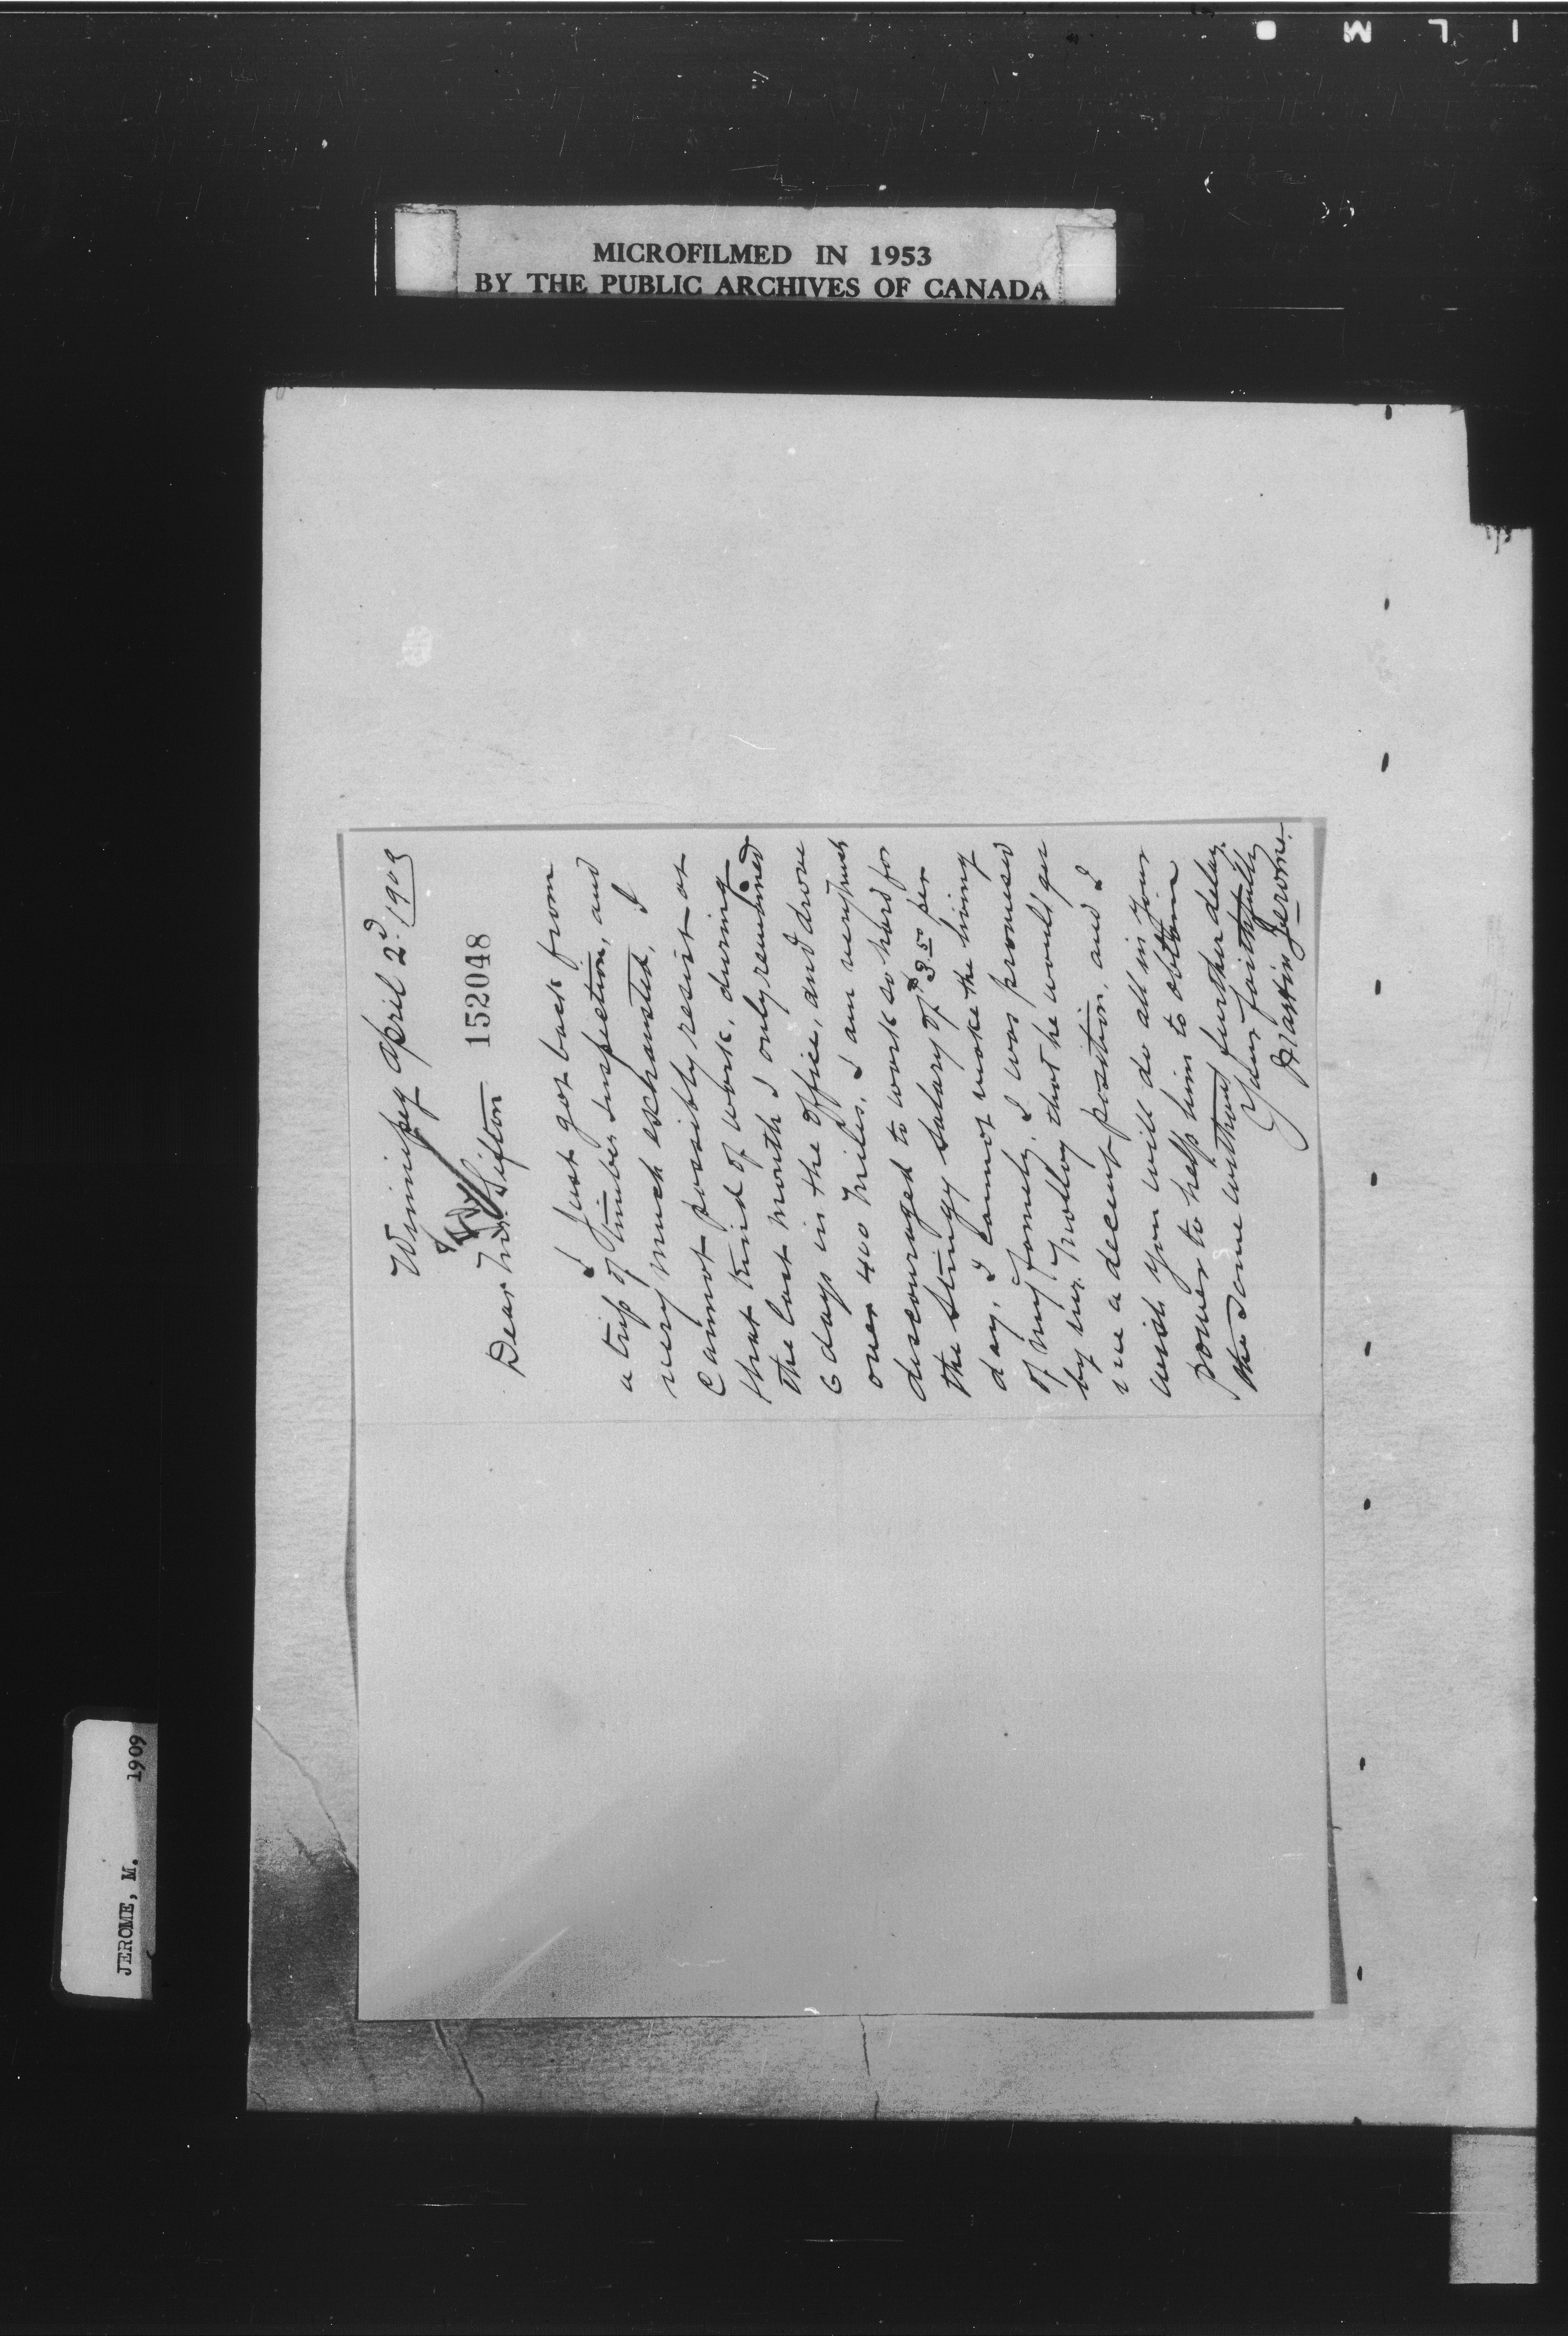 MICROFILMED IN 1953
BY THE PUBLIC ARCHIVES OF CANADA
JEROME, M. 1909
Winnipeg April 2d. 1909
152048
Dear Mr. Sifton
I just got back from
a trip of Timber Inspection, and
very much exhausted, I
cannot possibly resist at
that kind of work, during
the last month I only remained
6 days in the Office, and drove
over 400 miles. I am very much
discouraged to work so hard for
the stingy salary of $3.50 per
day, I cannot make the living
of my family. I was promised
by Mr. that he would get
me a decent position, and I
wish you will do all in your
power to help him to obtain
the same without further delay.
Yours faithfully
Martin Jerome.